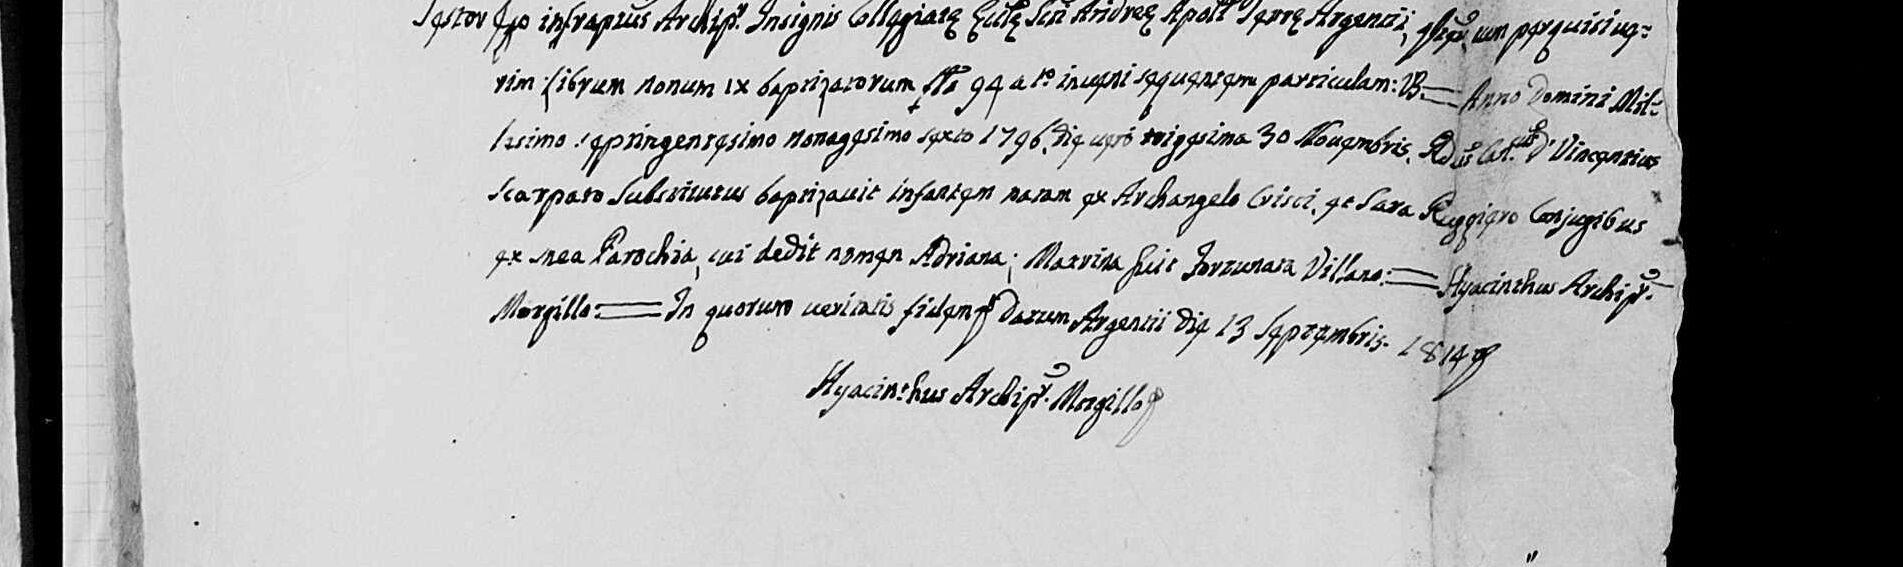 Testor Ego infrapt̃us Archip̃r. Insignis Collegiatę Ecclę Scti Andreę Apolĩ Terrę Argentii, cum perquisiue=
rim: librum nonum IX baptizatorum, fõl 94 a tº inueni sequentem particulam: VZ= Anno Domini Mil=
lesimo septingentesimo nonagesimo sexto 1796, die vero trigesima 30 Nouembris. Rd̃us Can.cus D. Vincentius
Scarpato Substitutus baptizauit infantem natam ex Archangelo Crisci, et Sara Ruggiero Conjugibus
ex mea Parochia, cui dedit nomen Adriana; Matrina fuit Fortunata Villano: = Hyacinthus Archip̃r.
Morgillo: = In quorum veritatis fidem Datum Argentii die 13 Septembris. 1814
Hyacinthus Archip̃r. Morgillo